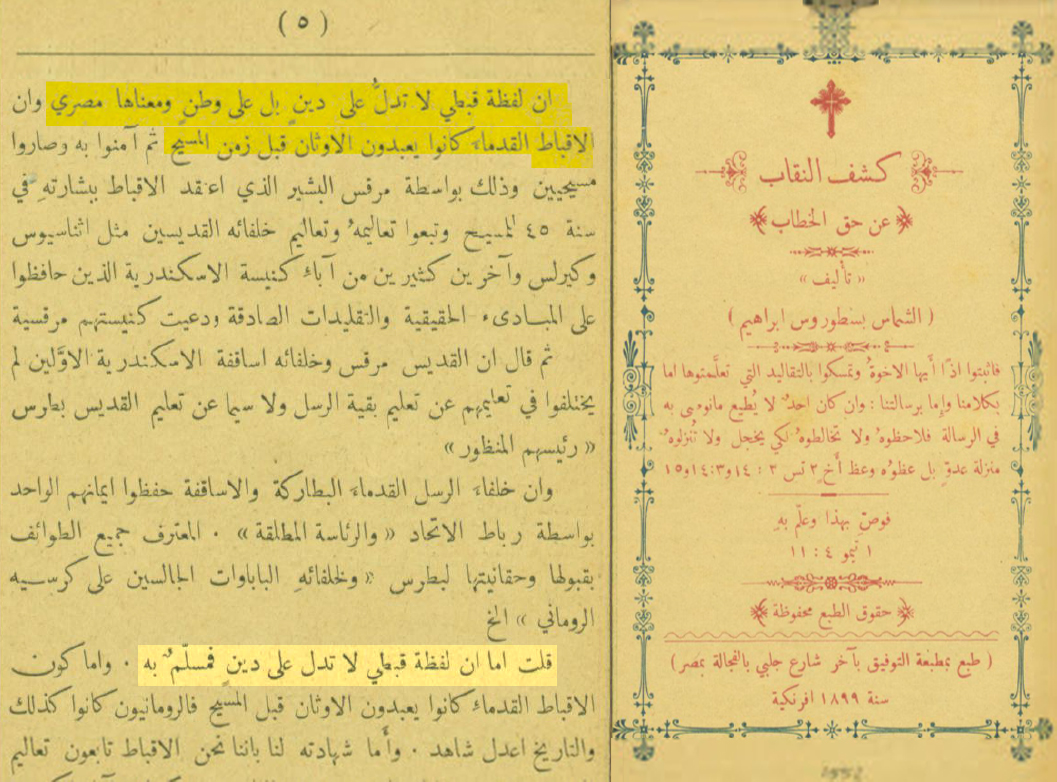 ( ٥ )
ان لفظة قبطي لا تدلُّ على دينٍ بل على وطنٍ ومعناها مصري وان
الاقباط القدماءَ كانوا يعبدون الاوثان قبل زمن المسيح ثم آمنوا به وصاروا
مسيحيين وذلك بواسطة مرقس البشير الذي اعتقد الاقباط ببشارتهِ في
سنة ٤٥ للمسيح وتبعوا تعاليمهُ وتعاليم خلفائه القديسين مثل اثناسيوس
وكيرلس وآخرين كثيرين من آباء كنيسة الاسكندرية الذين حافظوا
على المبادىء الحقيقية والتقليدات الصادقة ودعيت كنيستهم مرقسية
ثم قال ان القديس مرقس وخلفائه اساقفة الاسكندرية الاوَّلين لم
يختلفوا في تعليمهم عن تعليم بقية الرسل ولا سيما عن تعليم القديس بطرس
« رئيسهم المنظور »
وان خلفاءَ الرسل القدماءَ البطاركة والاساقفة حفظوا ايمانهم الواحد
بواسطة رباط الاتحاد « والرئاسة المطلقة » . المعترف جميع الطوائف
بقبولها وحقانيتها لبطرس « ولخلفائهِ الباباوات الجالسين على كرسيه
الروماني » الخ
قلت اما ان لفظة قبطي لا تدل على دينٍ فمسلَّمٌ به . واما كون
الاقباط القدماءَ كانوا يعبدون الاوثان قبل المسيح فالرومانيون كانوا كذلك
والتاريخ اعدل شاهد . وأَما شهادته لنا باننا نحن الاقباط تابعون تعاليم
كشف النقاب
عن حق الخطاب
« تأليف »
( الشماس بسنطوروس ابراهيم )
فاثبتوا اذًا أيها الاخوةُ وتمسكوا بالتقاليد التي تعلَّمتوها اما
بكلامنا وإما برسالتنا : وان كان احدٌ لا يُطيع مانوصى به
في الرسالة فلاحظوهُ ولا تخالطوهُ لكي يخجل ولا تُنزلوهُ
منزلة عدوٍّ بل عظوُه وعظ أَخٍ ٢ تس ٢ : ١٤ و٣:١٤ و١٥
فوصِّ بهذا وعلّم بهِ
١ تيمو ٤ : ١١
حقوق الطبع محفوظة
( طبع بمطبعة التوفيق بآخر شارع جلبي بالفجالة بمصر )
سنة ١٨٩٩ افرنكية